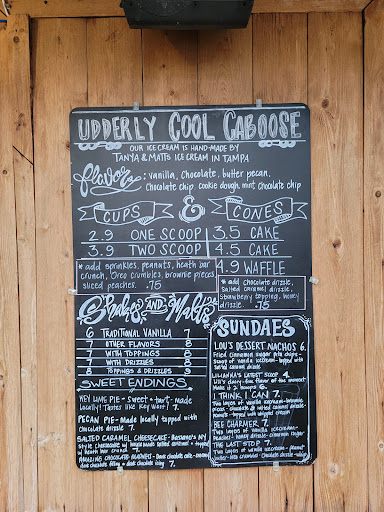 UDDERLY COOL CABOOSE
OUR ICE CREAM IS HAND-MADE BY
TANYA & MATTS ICE CREAM IN TAMPA
flavors: vanilla, chocolate, butter pecan,
chocolate chip cookie dough, mint chocolate chip
CUPS & CONES
2.9 ONE SCOOP 3.5 CAKE
3.9 TWO SCOOP 4.5 CAKE
4.9 WAFFLE
* add sprinkles, peanuts, heath bar
crunch, Oreo crumbles, brownie pieces,
sliced peaches. .75
* add chocolate drizzle,
salted caramel drizzle,
strawberry topping, honey
drizzle. .75
Shakes AND Malts
6 TRADITIONAL VANILLA 7
7 OTHER FLAVORS 8
7 WITH TOPPINGS 8
7 WITH DRIZZLES 8
8 TOPPINGS & DRIZZLES 9
SWEET ENDINGS
KEY LIME PIE - sweet + tart - made
locally! Tastes like Key West! 7.
PECAN PIE - made locally topped with
chocolate drizzle 7.
SALTED CARAMEL CHEESECAKE - NY
style cheesecake w/ salted caramel + topped
w/ heath bar crunch 7.
AMAZING CHOCOLATE MADNESS - Dark chocolate cake
dark chocolate filling + dark chocolate icing 7.
SUNDAES
LOU'S DESSERT NACHOS 6.
Fried cinnamon sugar pita chips -
scoop of vanilla icecream - topped with
salted caramel drizzle
LILIANNA'S LATEST SCOOP 4.
Lili's dairy-free flavor of the moment!
Make it 2 scoops 6.
I THINK I CAN 7.
Two layers of vanilla icecream - brownie
pieces - chocolate & salted caramel drizzle -
peanuts - topped with whipped cream
BEE CHARMER. 7.
Two layers of vanilla icecream -
Peaches - honey drizzle - cinnamon sugar
THE LAST STOP 7.
Two layers of vanilla icecream - peanut
chocolate drizzle